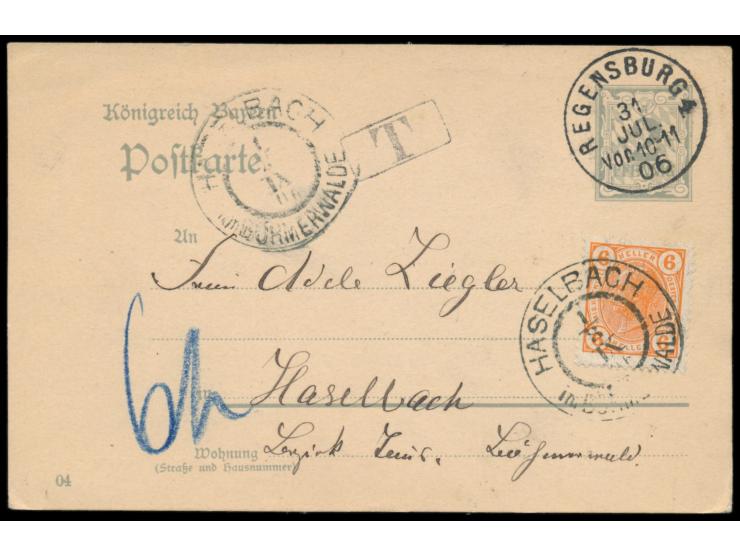 Königreich Bayern
Postkarte
REGENSBURG 4
31
JUL.
Vor. 10-11
06
HASELBACH
IX
im BÖHMERWALDE
T
6 HELLER 6
HASELBACH
im BÖHMERWALDE
An
Adele Ziegler
6h
in
Haselbach
Bezirk Taus. Böhmerwald.
Wohnung
(Straße und Hausnummer)
04